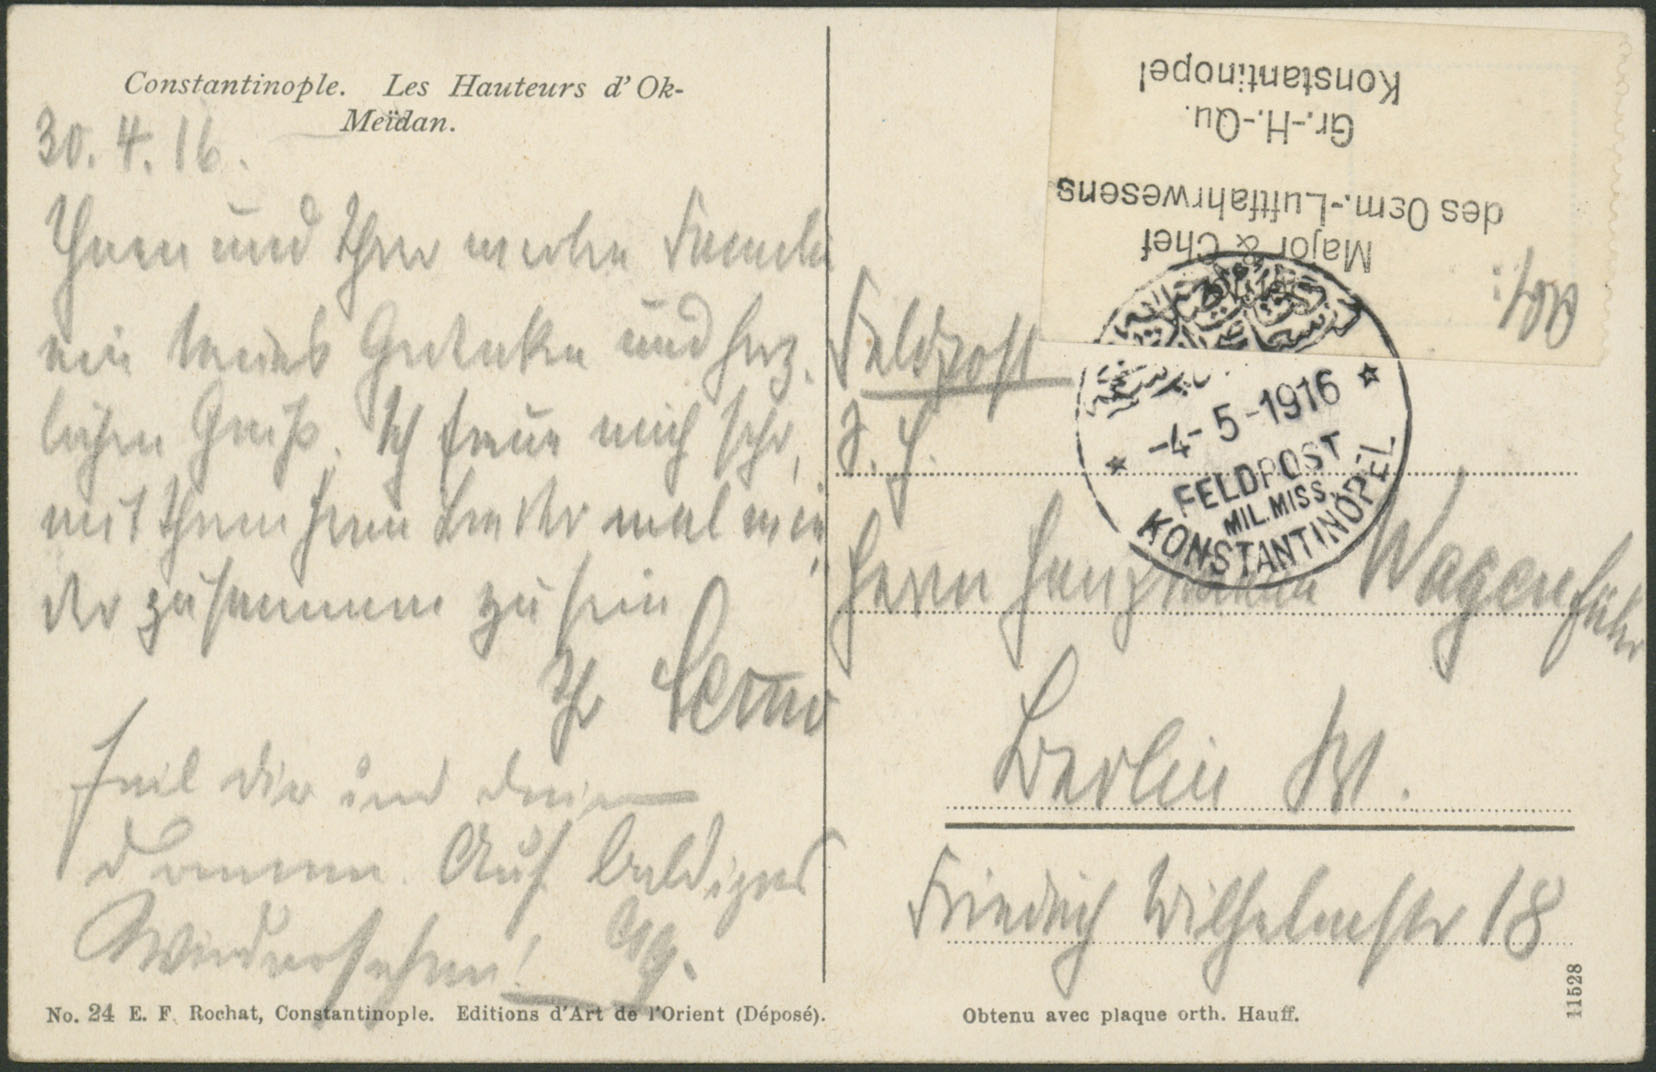 Constantinople. Les Hauteurs d'Ok-
Meïdan.
30. 4. 16.
Ihnen und Ihrer werten Familie
ein treues Gedenken und herz-
lichen Gruß. Ich freue mich sehr,
mit Ihrem Herrn Bruder mal wie
der zusammen zu sein
Ihr Serno
Heil dir und deinen
Damen. Auf baldiges
Wiedersehen!
Konstantinopel
Gr.-H.-Qu.
des Osm.-Luftfahrwesens
Major & Chef
Feldpost
-4-5-1916
FELDPOST
MIL. MISS.
KONSTANTINOPEL
Herrn Hauptmann Wagenführ
Berlin W.
Friedrich Wilhelmstr 18
No. 24 E. F. Rochat, Constantinople. Editions d'Art de l'Orient (Déposé).
Obtenu avec plaque orth. Hauff.
11528